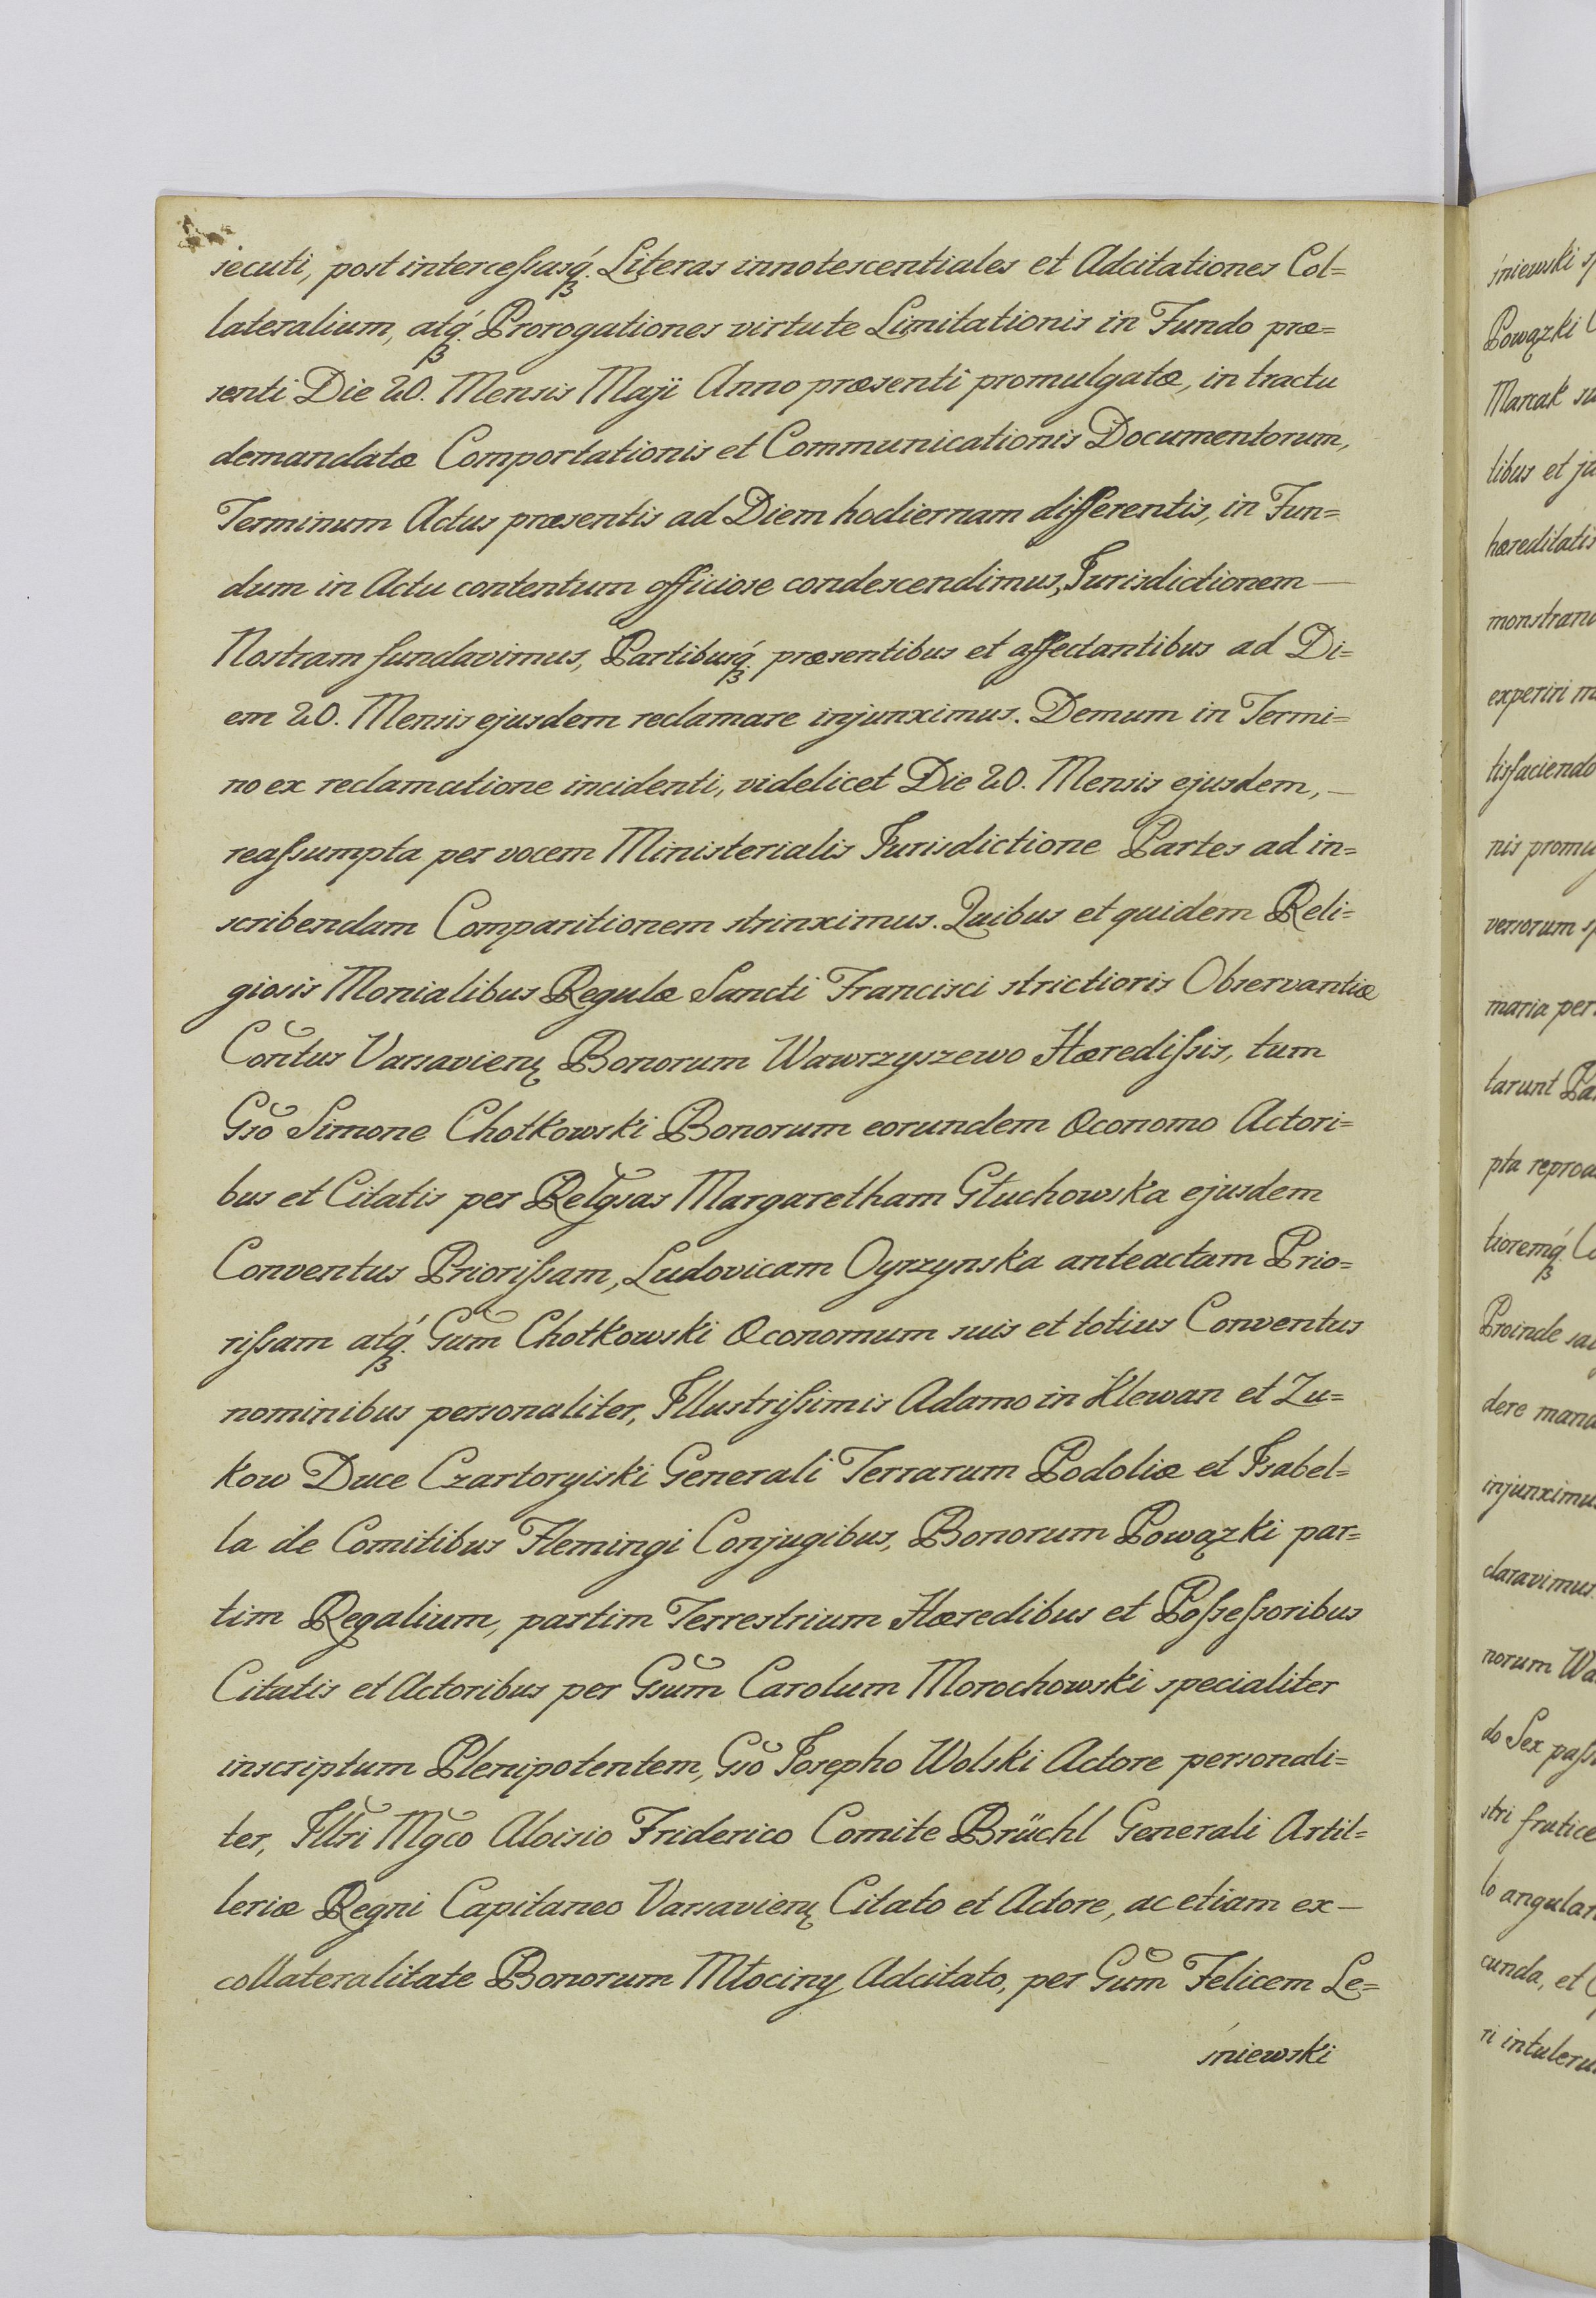 secuti, post intercessasq́ꝫ. Literas innotescentiales et Adcitationes Col=
lateralium, atq́ꝫ. Prorogationes virtute Limitationis in Fundo præ=
senti Die 20. Mensis Maji Anno præsenti promulgatæ, in tractu
demandatæ Comportationis et Communicationis Documentorum,
Terminum Actus præsentis ad Diem hodiernam differentis, in Fun=
dum in Actu contentum officiose condescendimus, Jurisdictionem —
Nostram fundavimus, Partibusq́ꝫ. præsentibus et affectantibus ad Di=
em 20. Mensis ejusdem reclamare injunximus. Demum in Termi=
no ex reclamatione incidenti, videlicet Die 20. Mensis ejusdem, —
reassumpta per vocem Ministerialis Jurisdictione Partes ad in=
scribendam Comparitionem strinximus. Quibus et quidem Reli=
giosis Monialibus Regulæ Sancti Francisci strictioris Observantiæ
Con̄tus Varsavien̨ Bonorum Wawrzyszewo Hæredissis, tum
Gsō Simone Chotkowski Bonorum eorundem Œconomo Actori=
bus et Citatis per Relgsas Margaretham Głuchowska ejusdem
Conventus Priorissam, Ludovicam Oyrzynska anteactam Prio=
rissam atq́ꝫ. Gūm Chotkowski Œconomum suis et totius Conventus
nominibus personaliter, Illustrissimis Adamo in Klewan et Zu=
kow Duce Czartoryiski Generali Terrarum Podoliæ et Isabel=
la de Comitibus Flemingi Conjugibus, Bonorum Powązki par=
tim Regalium, partim Terrestrium Hæredibus et Possessoribus
Citatis et Actoribus per Gsūm Carolum Morochowski specialiter
inscriptum Plenipotentem, Gsō Josepho Wolski Actore personali=
ter, Illri Mgco Aloisio Friderico Comite Brüchl Generali Artil=
leriæ Regni Capitaneo Varsavien̨ Citato et Actore, ac etiam ex —
collateralitate Bonorum Młociny Adcitato, per Gūm Felicem Le=
śniewski
śniewski
Powązki
Marcak
libus et
hæreditatis
experiri
tisfaciendo
nis
versorum
maria per
tarunt
pta
tioremq́ꝫ.
Proinde
dere
norum
do Sex
stri
lo
cunda, et
ri